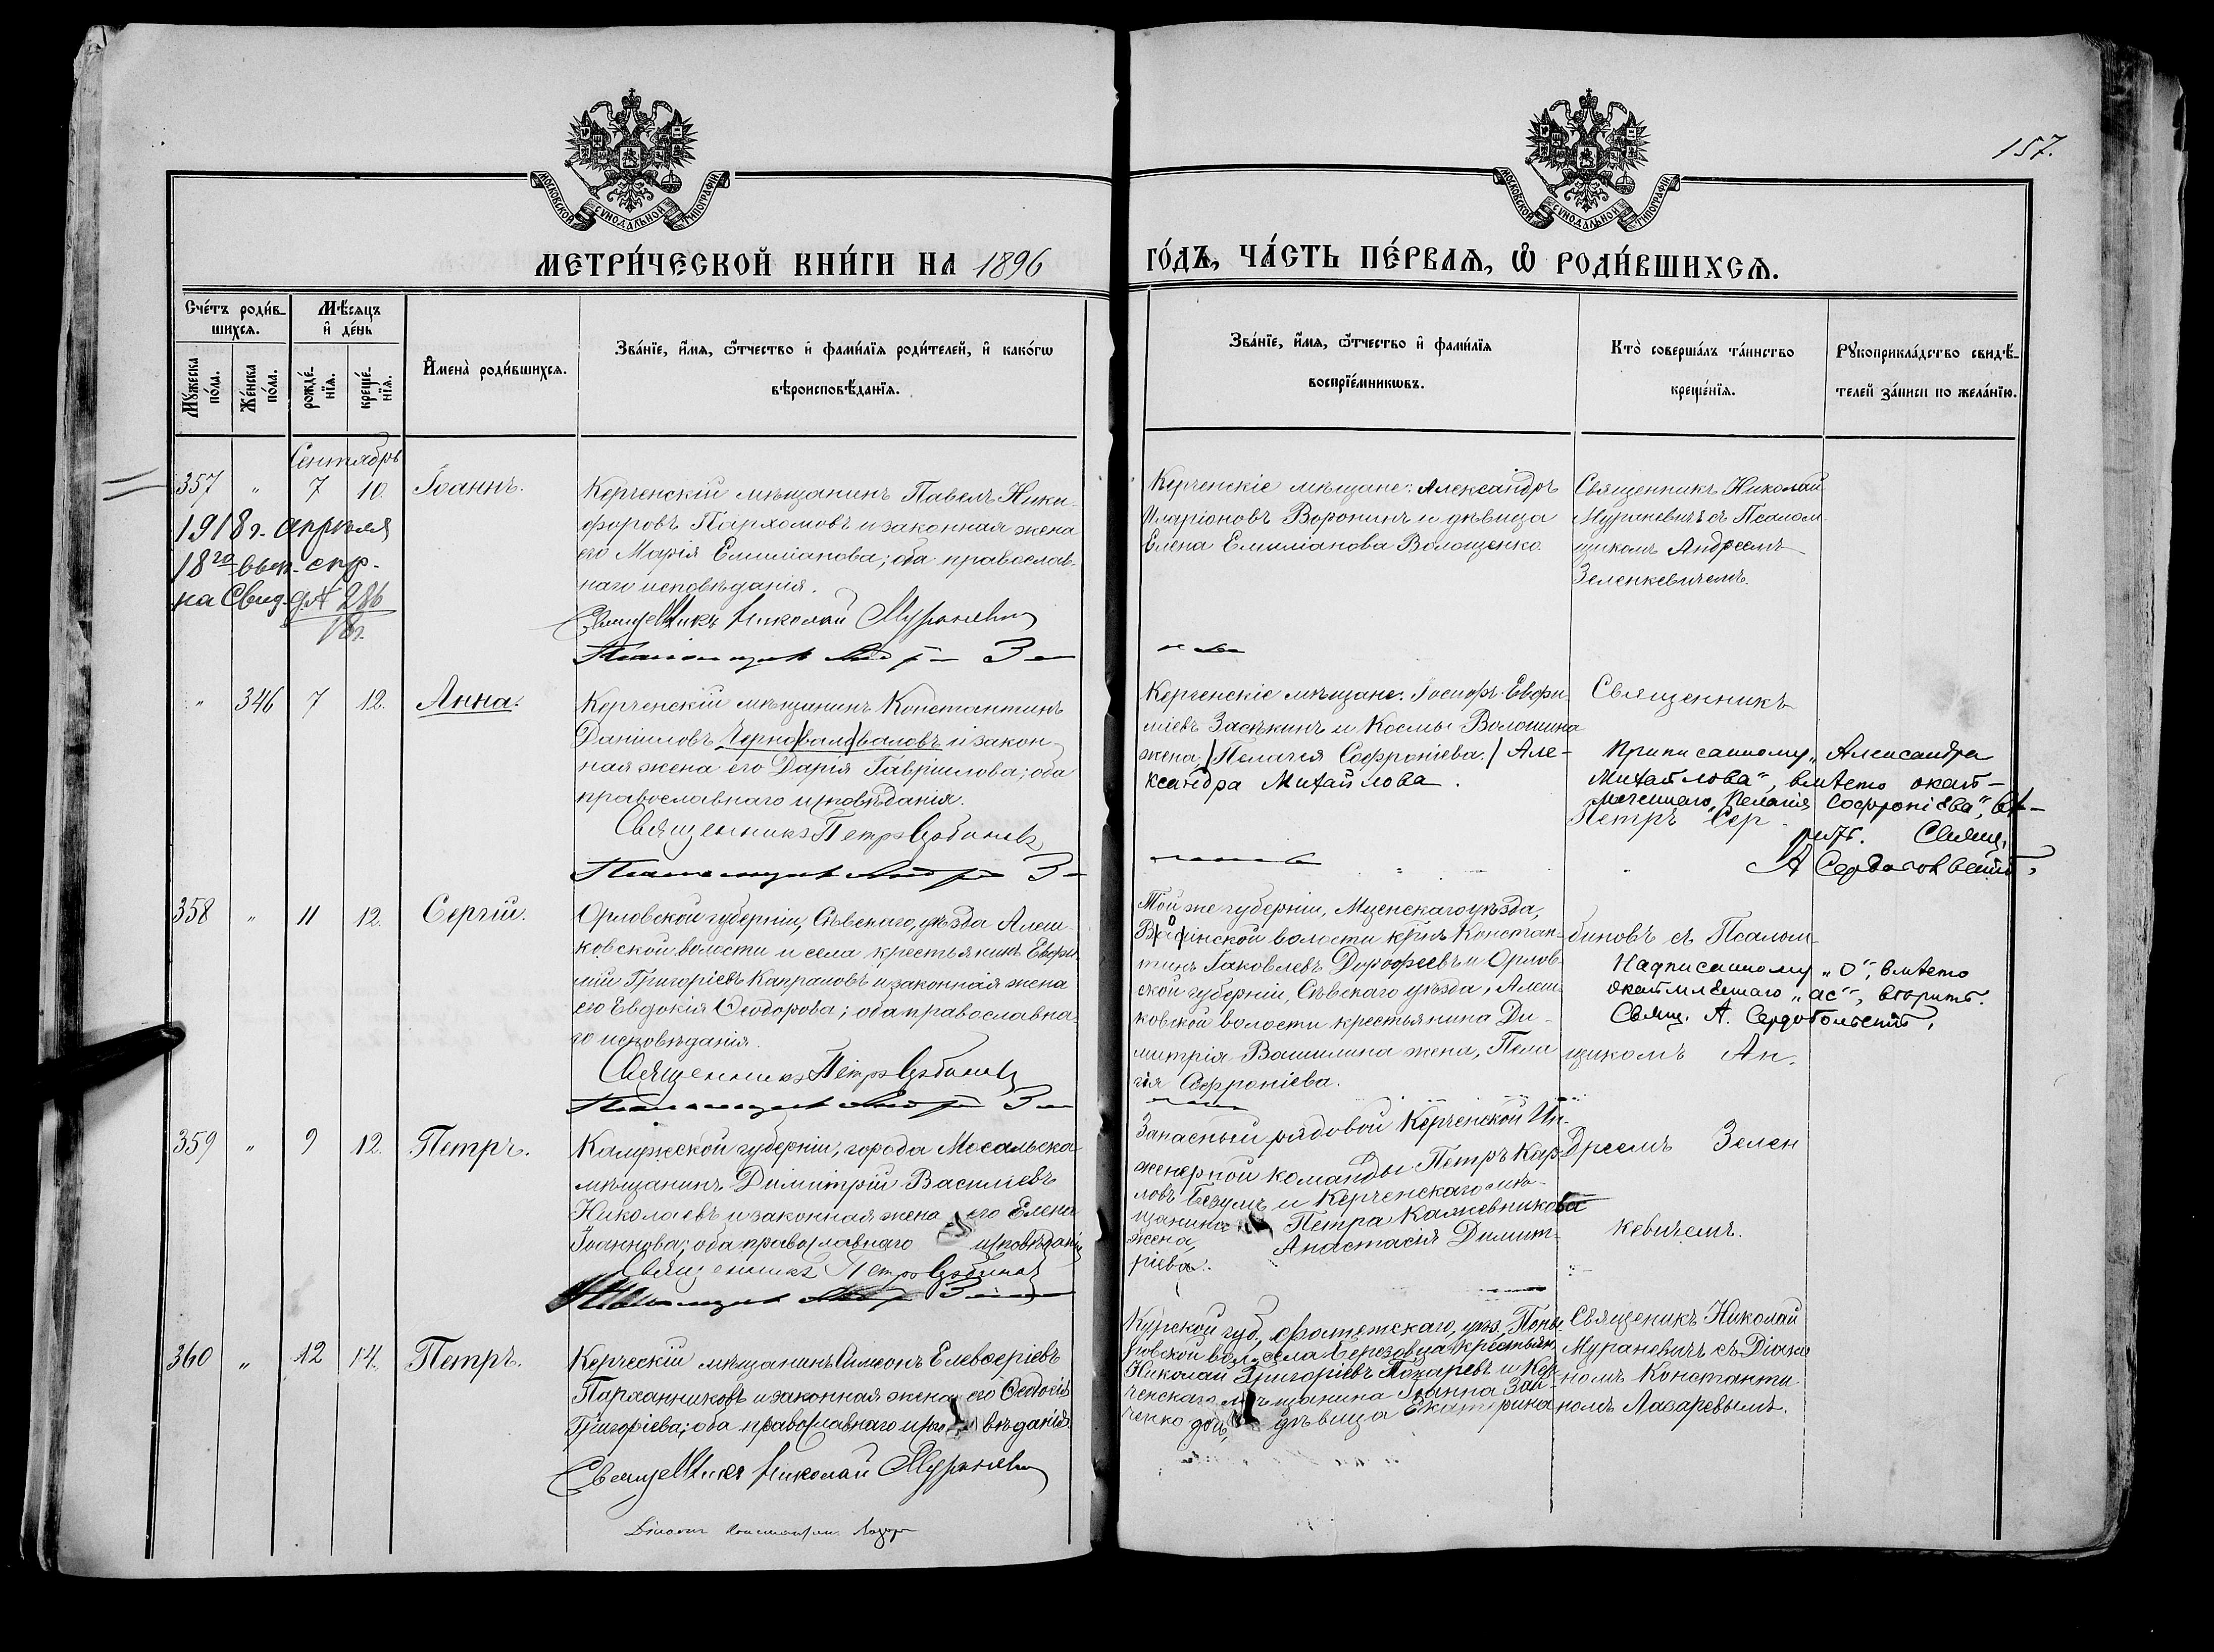 157.
МОСКОВСКОЙ СѴНОДАЛЬНОЙ ТИПОГРАФІИ
МОСКОВСКОЙ СѴНОДАЛЬНОЙ ТИПОГРАФІИ
МЕТРИ́ЧЕСКОЙ КНИ́ГИ НА 1896
ГО́ДЪ, ЧА́СТЬ ПЕ́РВАѦ, Ѡ҆ РОДИ́ВШИХСѦ.
Сче́тъ роди́в-
шихсѧ.
Мѣ́сѧцъ
и҆ де́нь
Мꙋ́жеска
по́ла.
Же́нска
по́ла.
рожде́-
нїѧ.
креще́-
нїѧ.
И҆мена̀ роди́вшихсѧ.
Зва́нїе, и҆́мѧ, ѻ҆́тчество и҆ фами́лїѧ роди́телей, и҆ како́гѡ
вѣроисповѣ́данїѧ.
Зва́нїе, и҆́мѧ, ѻ҆́тчество и҆ фами́лїѧ
воспрїе́мникѡвъ.
Кто̀ соверша́лъ та́инство
креще́нїѧ.
Рꙋкоприкла́дство свидѣ́-
телей за́писи по жела́нїю.
Сентябрь
357 " 7 10. Іоаннъ.
Керченскій мѣщанинъ Павелъ Ники-
форовъ Пархомовъ и законная жена
его Марія Емиліанова; оба православ-
наго исповѣданія.
Священникъ Николай Мураневич
1918 г. апреля
18го выд. спр.
на Свид. 286
18 г.
Керченскіе мѣщане: Александръ
Иларіоновъ Воронинъ и дѣвица
Елена Емиліанова Волощенко.
Священникъ Николай
Мураневичъ съ Псалом-
щикомъ Андреемъ
Зеленкевичемъ.
" 346 7 12. Анна.
Керченскій мѣщанинъ Константинъ
Даніиловъ Черно(вал)валовъ и закон-
ная жена его Дарія Гавріилова; оба
православнаго исповѣданія.
Священникъ Петръ Сербиновъ
Керченскіе мѣщане: Іосифъ Евфи-
міевъ Засѣкинъ и Космы Волошина
жена (Пелагея Софроніева.) Але-
ксандра Михайлова.
Священникъ
Приписанному „Александра
Михайлова", вмѣсто
„Пелагія Софроніева",
Петръ Сер-
Свящ.
А Сердобольскій,
358 " 11 12. Сергій.
Орловской губерніи, Сѣвскаго уѣзда Алеш-
ковской волости и села крестьянинъ Евфи-
мій Григоріевъ Капраловъ и законная жена
его Евдокія Ѳеодорова; оба православна-
го исповѣданія.
Священникъ Петръ Сербиновъ
Той же губерніи, Мценскаго уѣзда,
волости крнъ Констан-
тинъ Іаковлевъ Дорофеевъ и Орлов-
ской губерніи, Сѣвскаго уѣзда, Алеш-
ковской волости крестьянина Ди-
митрія Вашилина жена, Пела-
гія Софроніева.
биновъ съ Псалом-
Надписанному „о", вмѣсто
„ас", вѣрить.
Свящ. А. Сердобольскій,
щикомъ Ан-
359 " 9 12. Петръ.
Калужской губерніи, города Мосальска
мѣщанинъ Димитрій Василіевъ
Николаевъ и законная жена его Елена
Іоаннова; оба православнаго исповѣданія
Священникъ Петръ Сербиновъ
Запасный рядовой Керченской Ин-
женерной команды Петръ Кар-
ловъ и Керченскаго мѣ-
щанина Петра Кожевникова
жена, Анастасія Димит-
ріева.
дреемъ Зелен
кевичемъ.
360 " 12 14. Петръ.
Керческій мѣщанинъ Симеонъ Елевѳеріевъ
Парханниковъ и законная жена его Ѳеодосія
Григоріева; оба православнаго исповѣданія.
Священникъ Николай Мураневич
Діаконъ Константин Лазарев
Курской губ., Фатежскаго, уѣз. Поны-
ровской вол., села Березовца крестьян.
Николай Григоріевъ Токаревъ и Кер-
ченскаго мѣщанина Іоанна Зай-
ченко дочь, дѣвица Екатерина
Священикъ Николай
Мураневичъ съ Діако-
номъ Константи-
номъ Лазаревымъ.